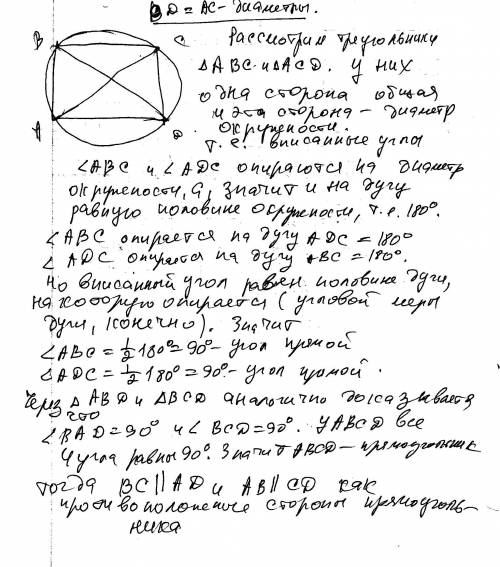 BD = AC - диаметры.
B
C
A
D
Рассмотрим треугольники
△ABC и △ACD. У них
одна сторона общая
и эта сторона - диаметр
окружности.
т.е. вписанные углы
∠ABC и ∠ADC опираются на диаметр
окружности, а, значит и на дугу
равную половине окружности, т.е. 180°.
∠ABC опирается на дугу ADC = 180°
∠ADC опирается на дугу ABC = 180°.
Но вписанный угол равен половине дуги,
на которую опирается (угловой меры
дуги, конечно). Значит
∠ABC = 1/2 180° = 90° - угол прямой
∠ADC = 1/2 180° = 90° - угол прямой.
Через △ABD и △BCD аналогично доказывается
что
∠BAD = 90° и ∠BCD = 90°. У ABCD все
4 угла равны 90°. Значит ABCD - прямоугольник
Тогда BC || AD и AB || CD как
противоположные стороны прямоуголь-
ника